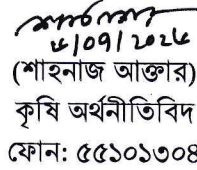 ৮/০9/২০২৫
(শাহনাজ আক্তার)
কৃষি অর্থনীতিবিদ
ফোন: ৫৫১০১৩০৪